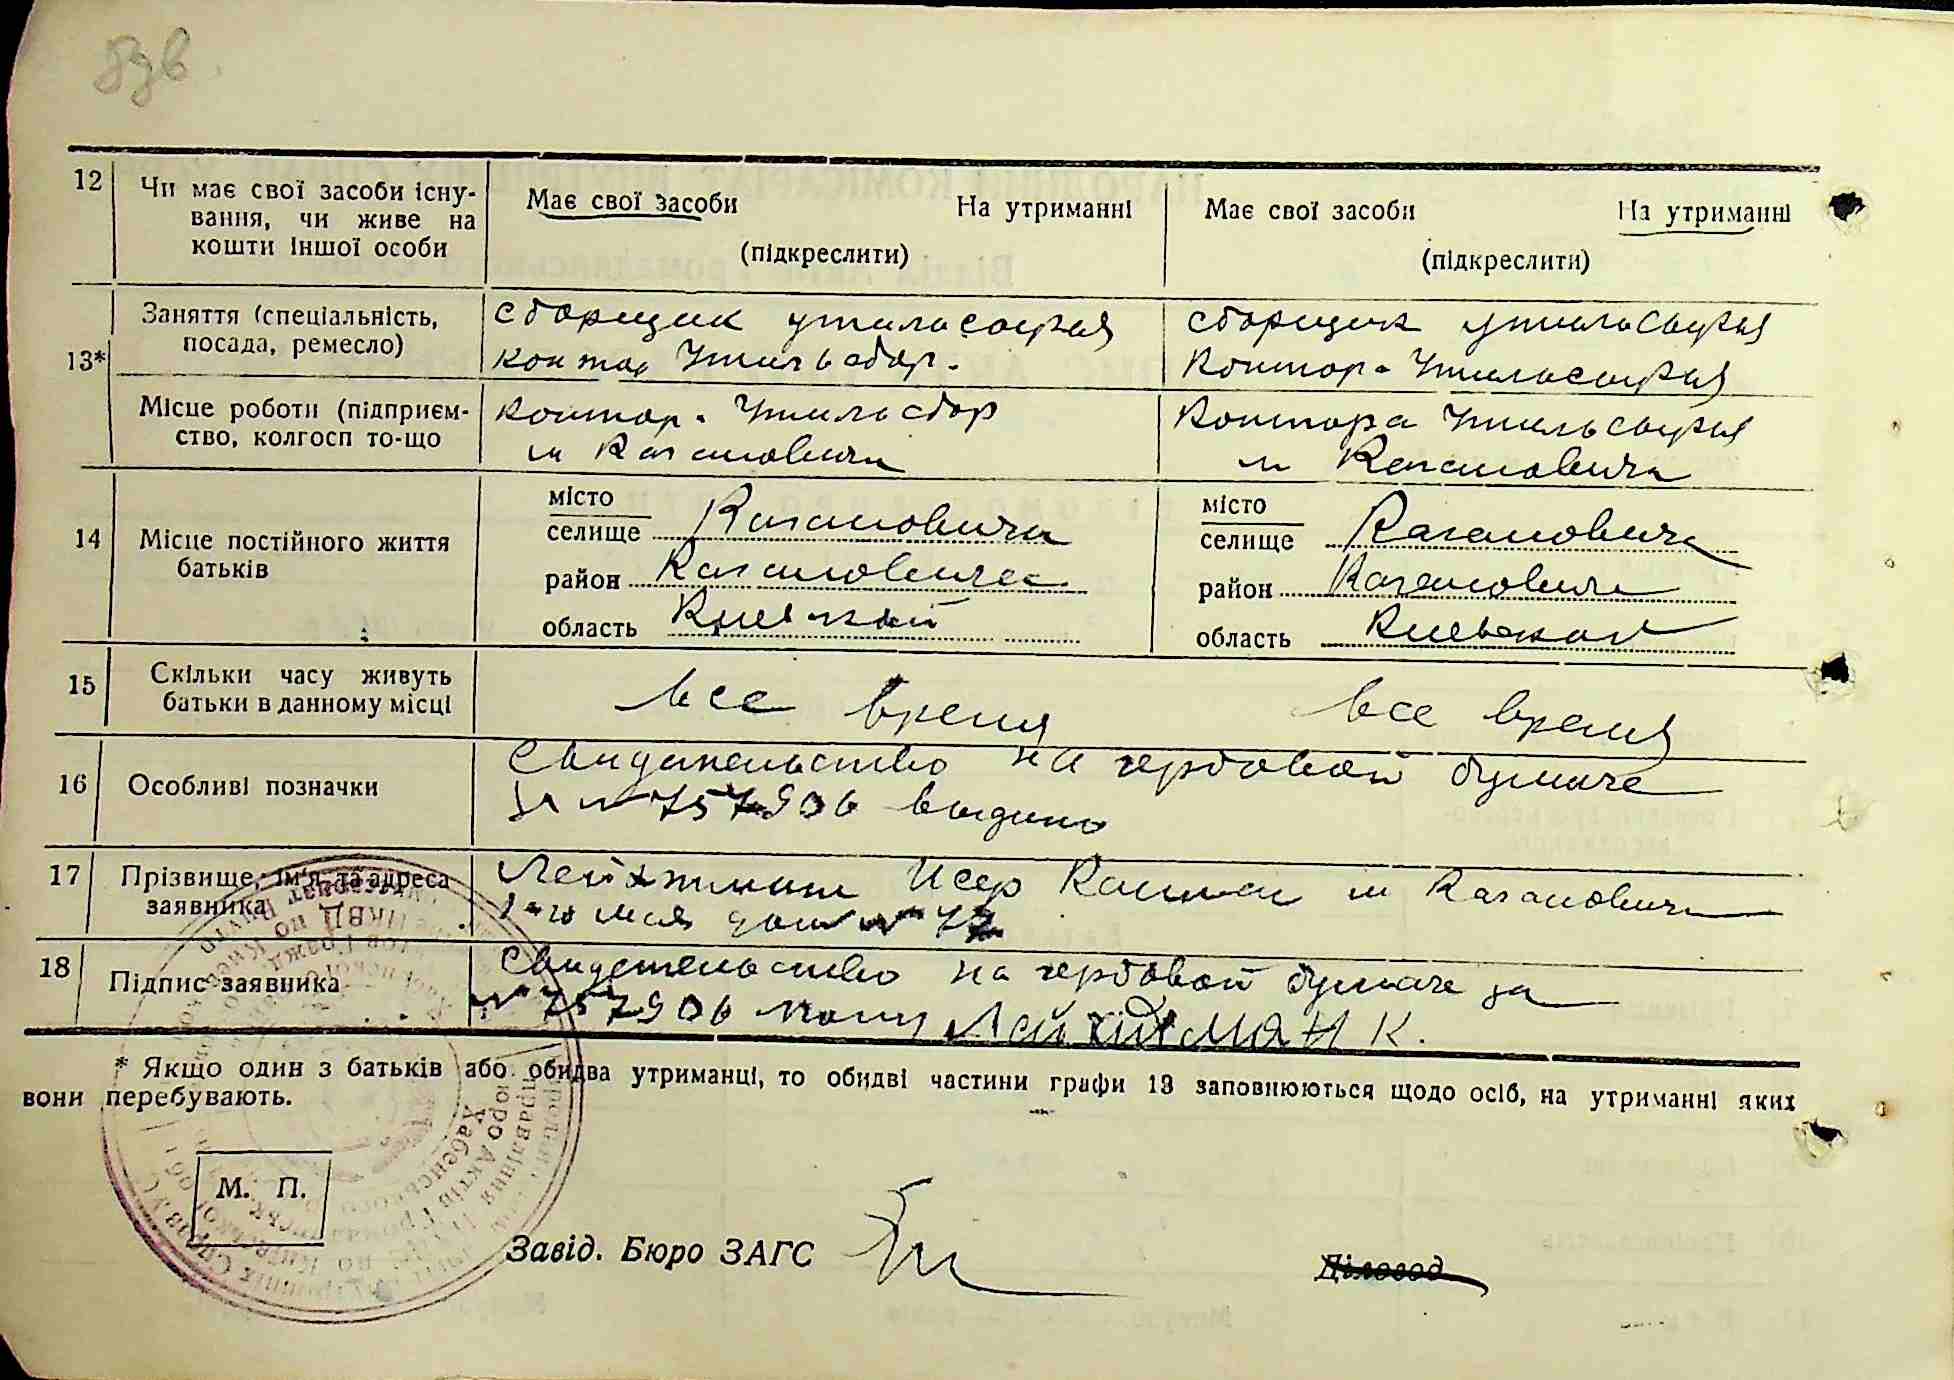 12 Чи має свої засоби існу-
вання, чи живе на
кошти іншої особи
Має свої засоби На утриманні
(підкреслити)
Має свої засоби На утриманні
(підкреслити)
13*
Заняття (спеціальність,
посада, ремесло)
сборщик утильсырья
контор Утильсбор.
сборщик утильсырья
Контор. Утильсырья
Місце роботи (підприєм-
ство, колгосп то-що
контор. Утильсбор
м Кагановичи
Контора Утильсырья
м Кагановичи
14 Місце постійного життя
батьків
місто
селище Кагановичи
район Кагановичес
область Киевской
місто
селище Кагановичи
район Кагановичи
область Киевской
15 Скільки часу живуть
батьки в данному місці
все время все время
16 Особливі позначки
Свидетельство на гербовой бумаге
за № 757906 выдано
17 Прізвище, ім'я та адреса
заявника
Лейхтман Исер м Кагановичи
1-го мая дом №
18 Підпис заявника
Свидетельство на гербовой бумаге за
№ 757906 получ Лейхтман К.
* Якщо один з батьків або обидва утриманці, то обидві частини графи 13 заповнюються щодо осіб, на утриманні яких
вони перебувають.
М. П.
Завід. Бюро ЗАГС
Діловод